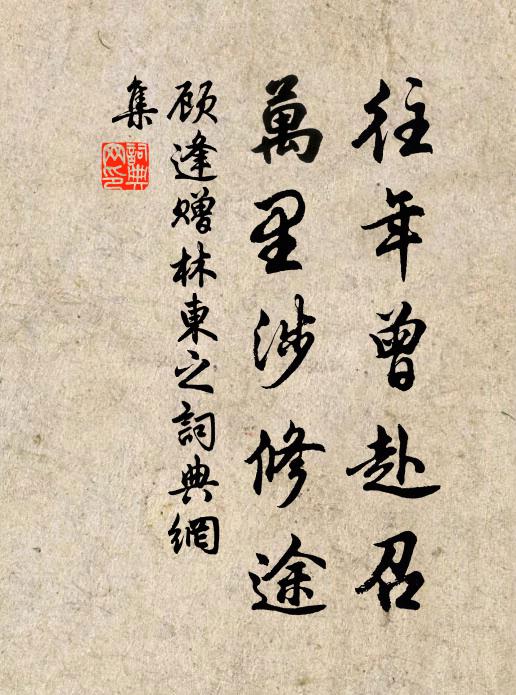 往年曾赴召
萬里涉修途
顾逢赠林東之詞典網
集
詞典網印